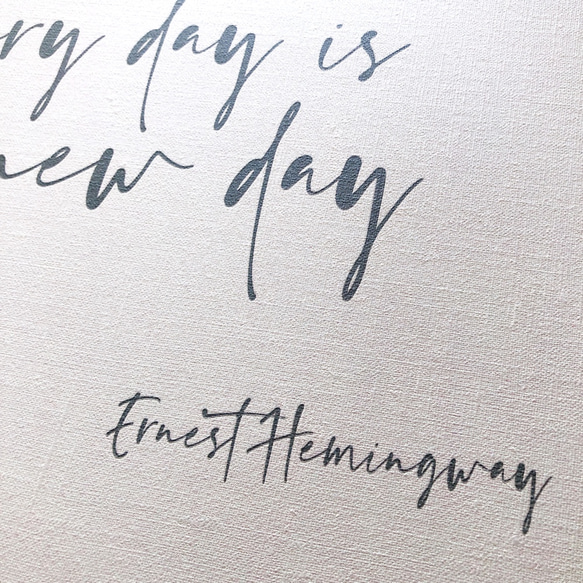 ry day is
new day
Ernest Hemingway